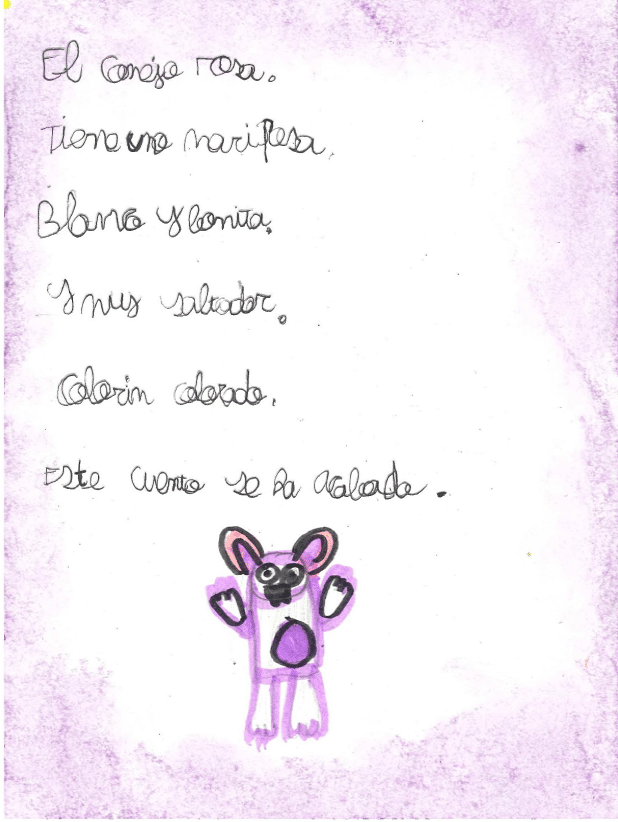 El conejo rosa.
Tiene una mariposa.
Blanco y bonita.
Y muy saltador.
Colorin colorado.
Este cuento se ha acabado.